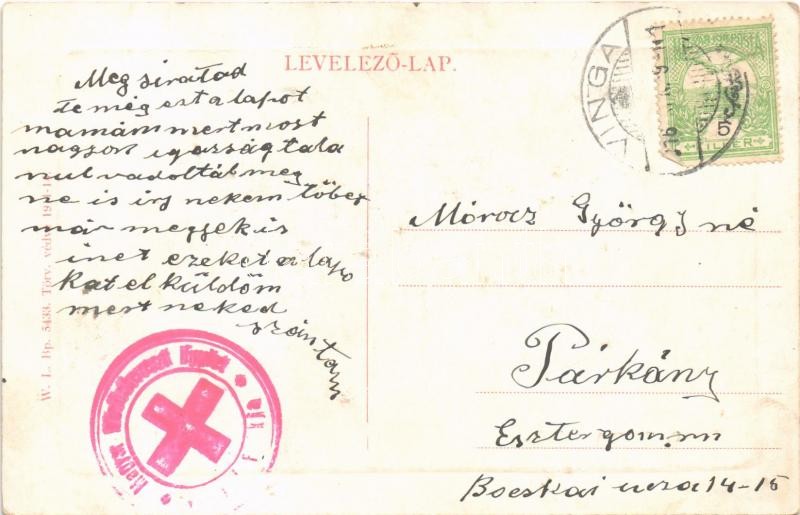 LEVELEZŐ-LAP.
Meg siratad
te még ezt a lapot
mamám mert most
nagyon igazságtala
nul vadoltál meg
ne is irj nekem töbet
már megyek is
inet ezeket a lapo
kat elküldöm
mert neked
szántam
W. L. Bp. 5433. Törv. védve
Magyar Vöröskereszt Egylet
VINGA
MAGYAR KIR. POSTA
5
FILLÉR
Mórocz György né
Párkány
Esztergom m
Bocskai ucza 14-15